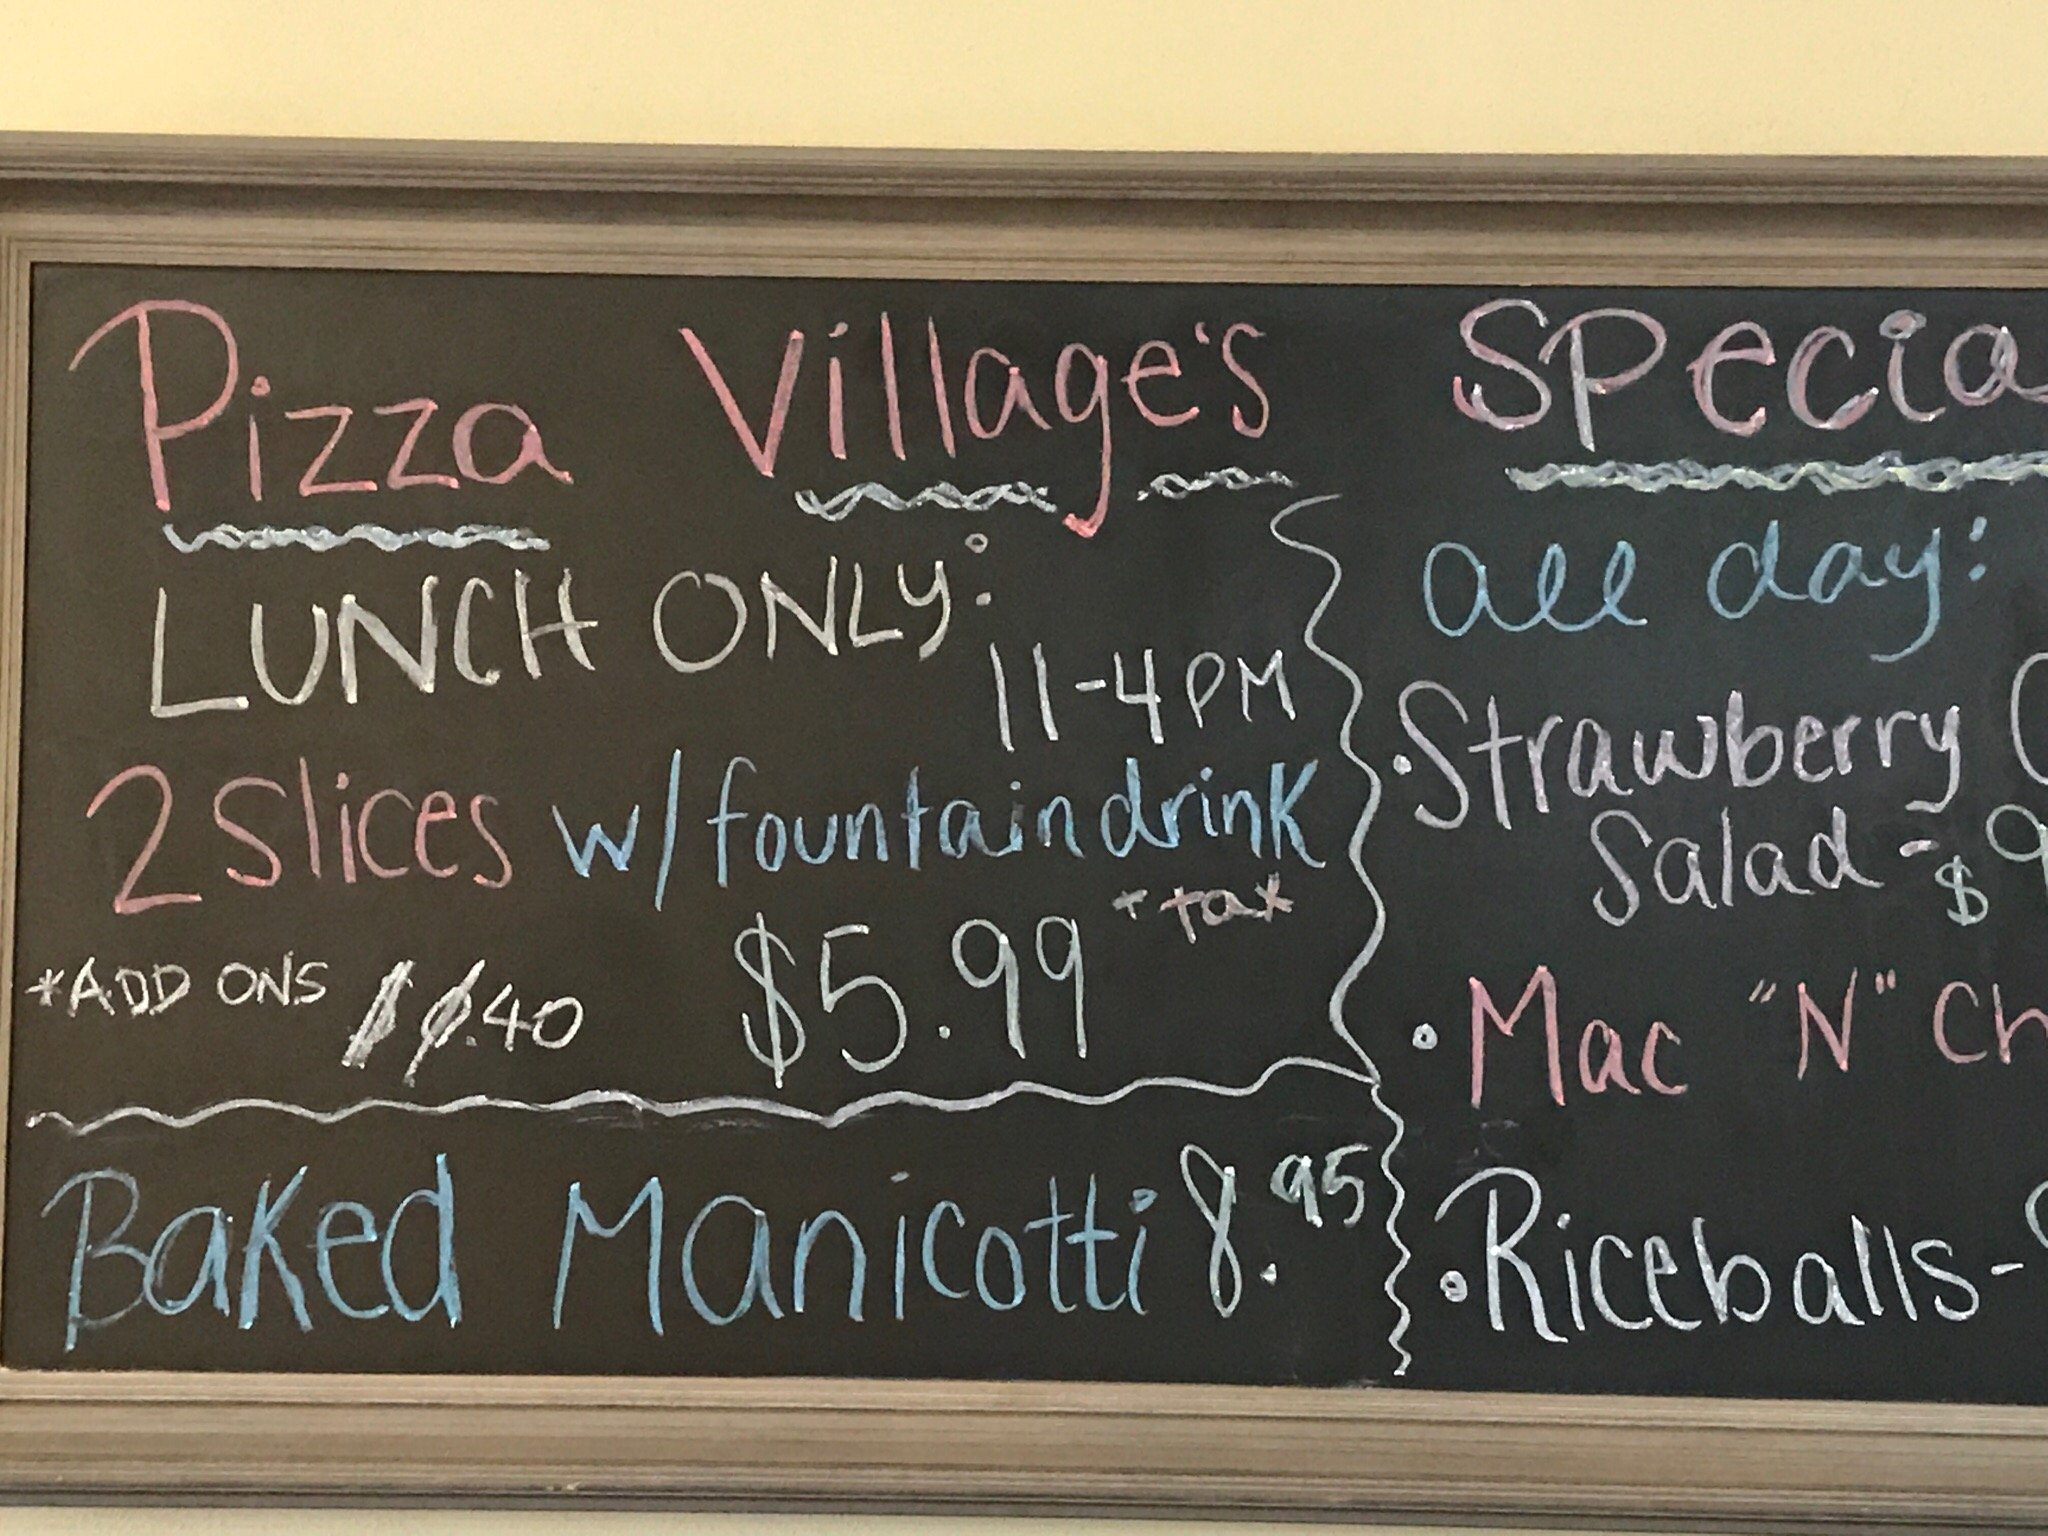 Pizza Village's Specia
LUNCH ONLY:
11-4PM
2 Slices w/fountain drink
$5.99 + tax
*ADD ONS $0.40
Baked Manicotti 8.95
all day:
• Strawberry
Salad - $9
• Mac "N" Ch
• Riceballs -